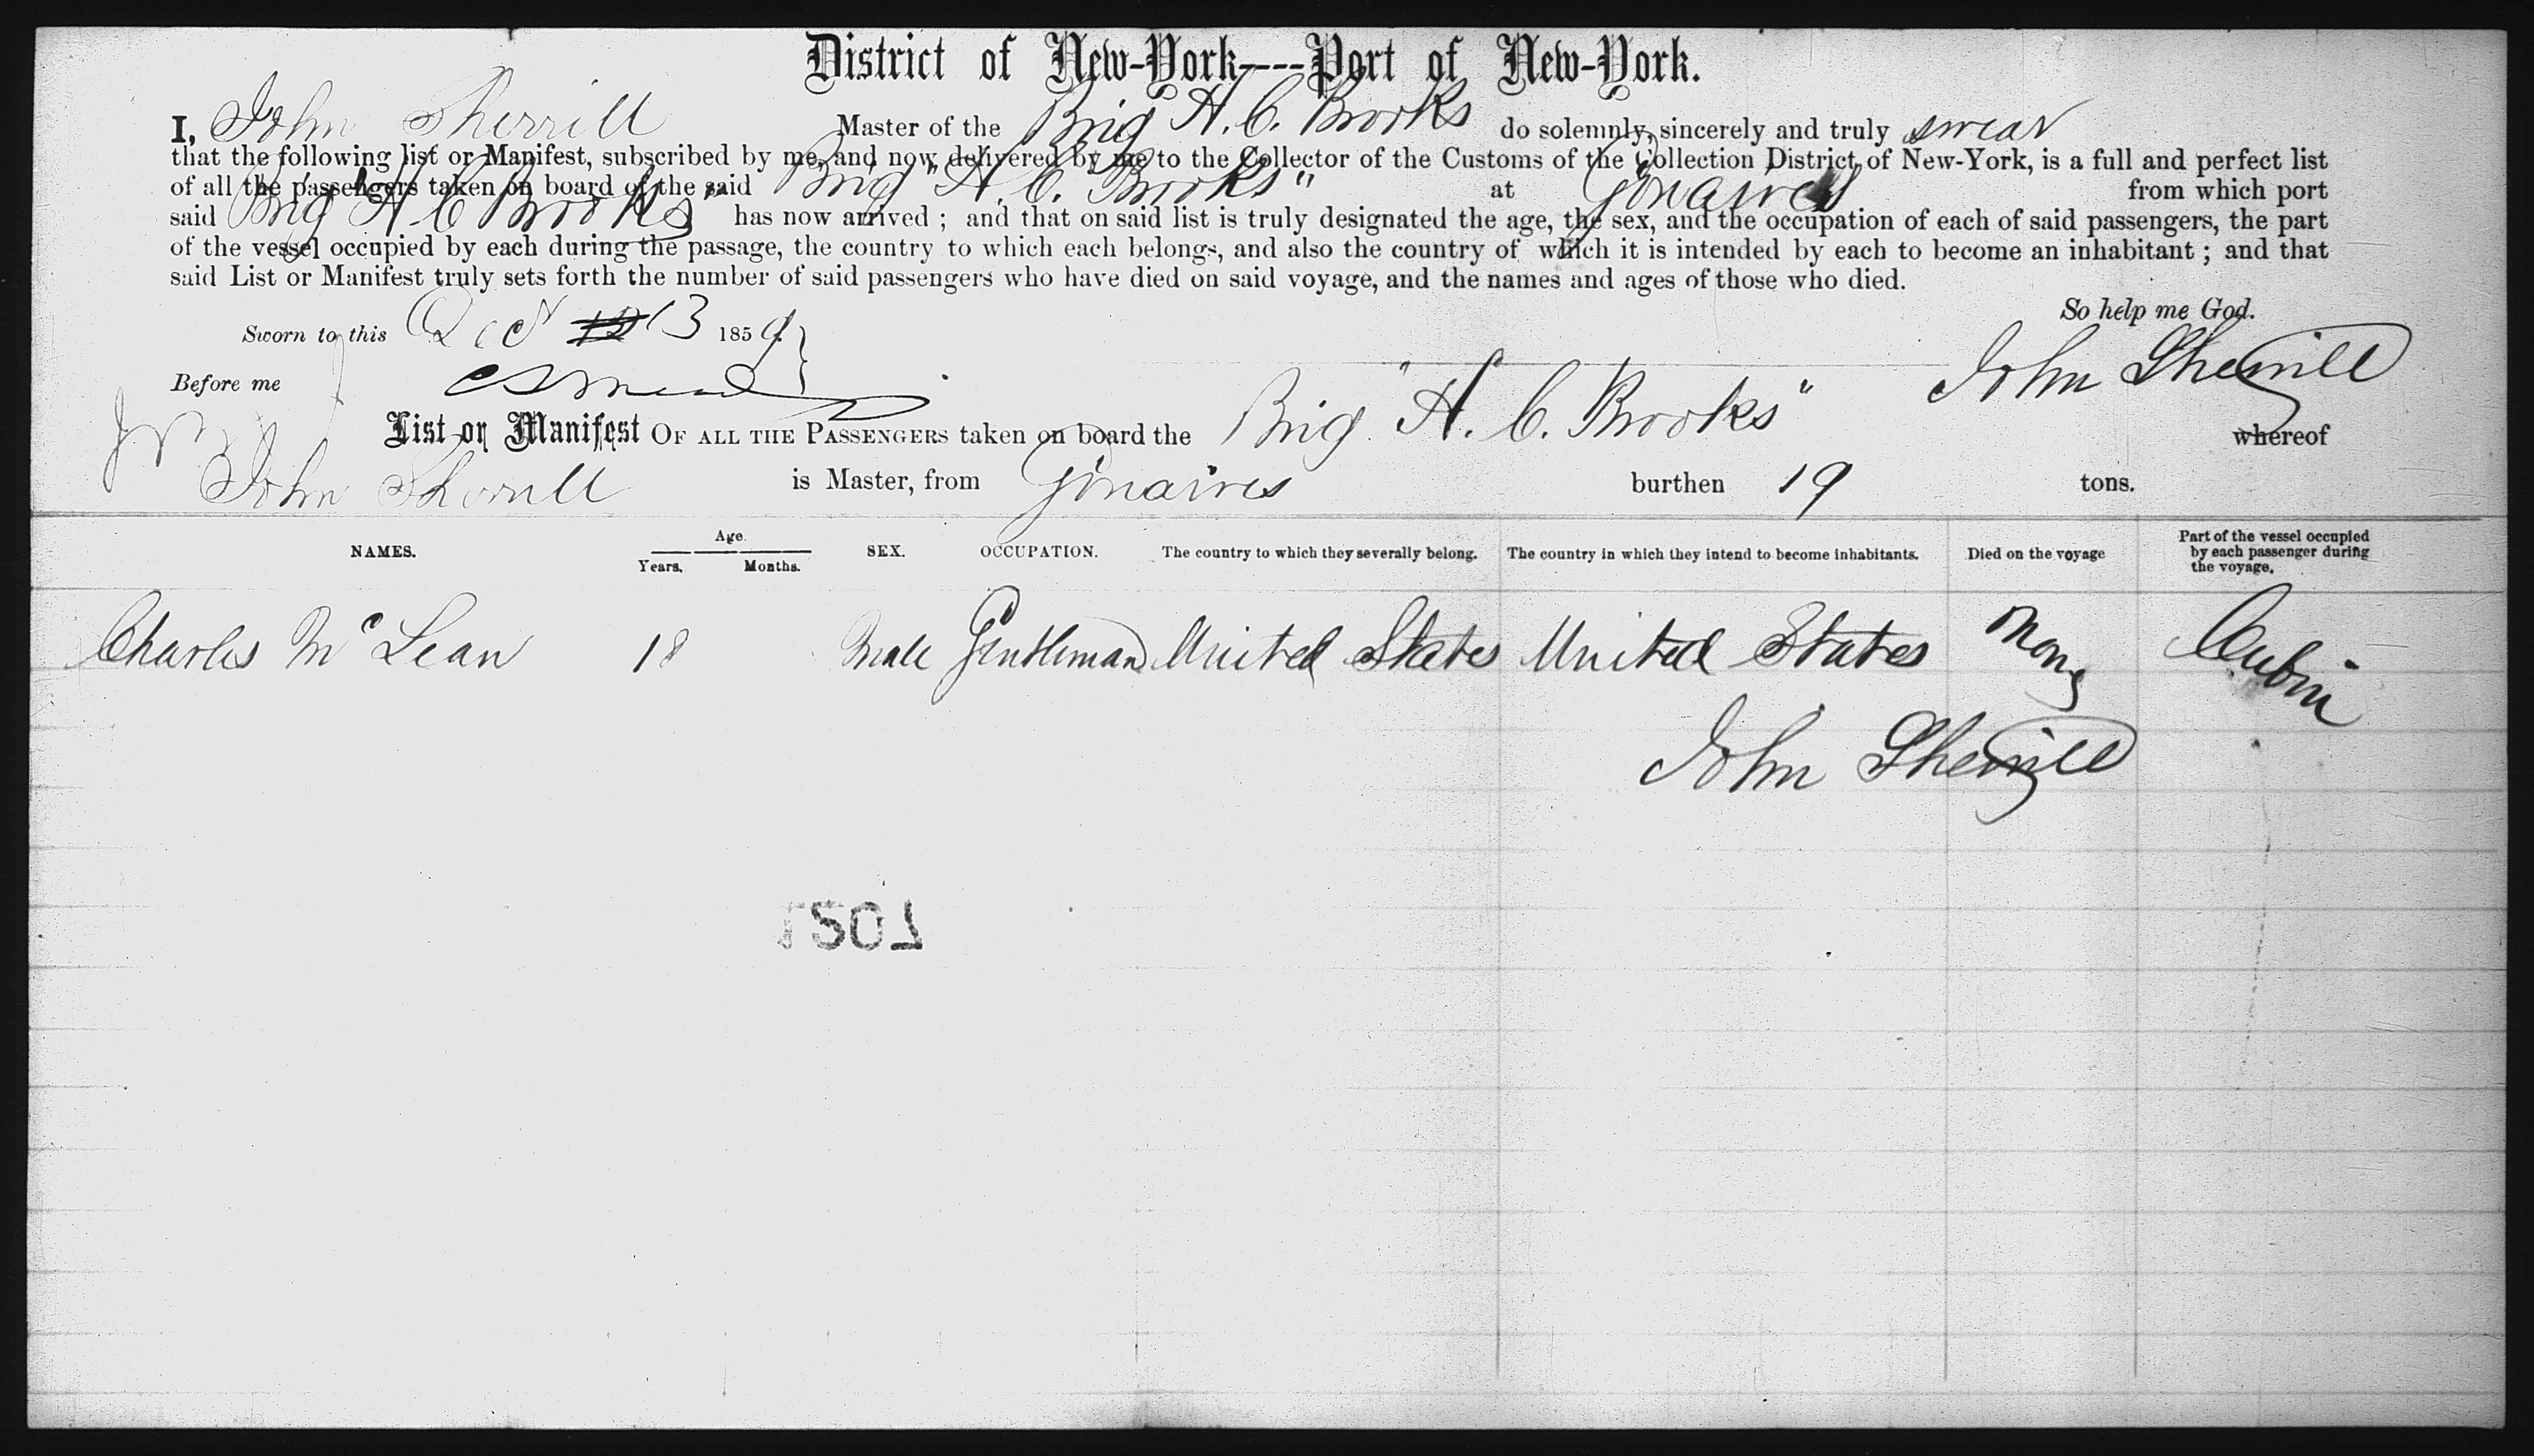 District of New-York----Port of New-York.
I, John Sherrill Master of the Brig H. C. Brooks do solemnly, sincerely and truly swear
that the following list or Manifest, subscribed by me, and now delivered by me to the Collector of the Customs of the Collection District of New-York, is a full and perfect list
of all the passengers taken on board of the said Brig "H. C. Brooks" at Gonaives from which port
said Brig "H C Brooks" has now arrived ; and that on said list is truly designated the age, the sex, and the occupation of each of said passengers, the part
of the vessel occupied by each during the passage, the country to which each belongs, and also the country of which it is intended by each to become an inhabitant ; and that
said List or Manifest truly sets forth the number of said passengers who have died on said voyage, and the names and ages of those who died.
So help me God.
Sworn to this Oct 13 1859
Before me
John Sherrill
List or Manifest OF ALL THE PASSENGERS taken on board the Brig "H. C. Brooks" whereof
John Sherrill is Master, from Gonaives burthen 19 tons.
NAMES. Age. Years. Months. SEX. OCCUPATION. The country to which they severally belong. The country in which they intend to become inhabitants. Died on the voyage Part of the vessel occupied by each passenger during the voyage.
Charles Mc Lean 18 Male Gentleman United States United States None Cabin
John Sherrill